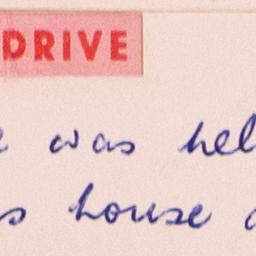 DRIVE
was hel
house